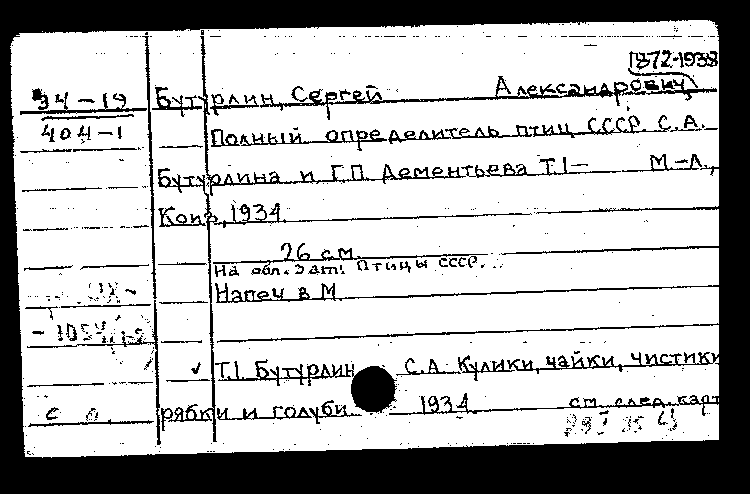 1872-1938
34-19 Бутурлин, Сергей Александрович,
404-1 Полный определитель птиц СССР С.А.
Бутурлина и Г.П. Дементьева Т.1- М.-Л.,
Коиз, 1934.
26 см.
На обл. загл: Птицы СССР.
Напеч в М.
✓ Т.1 Бутурлин С.А. Кулики, чайки, чистики
рябки и голуби 1934. см. след. карт